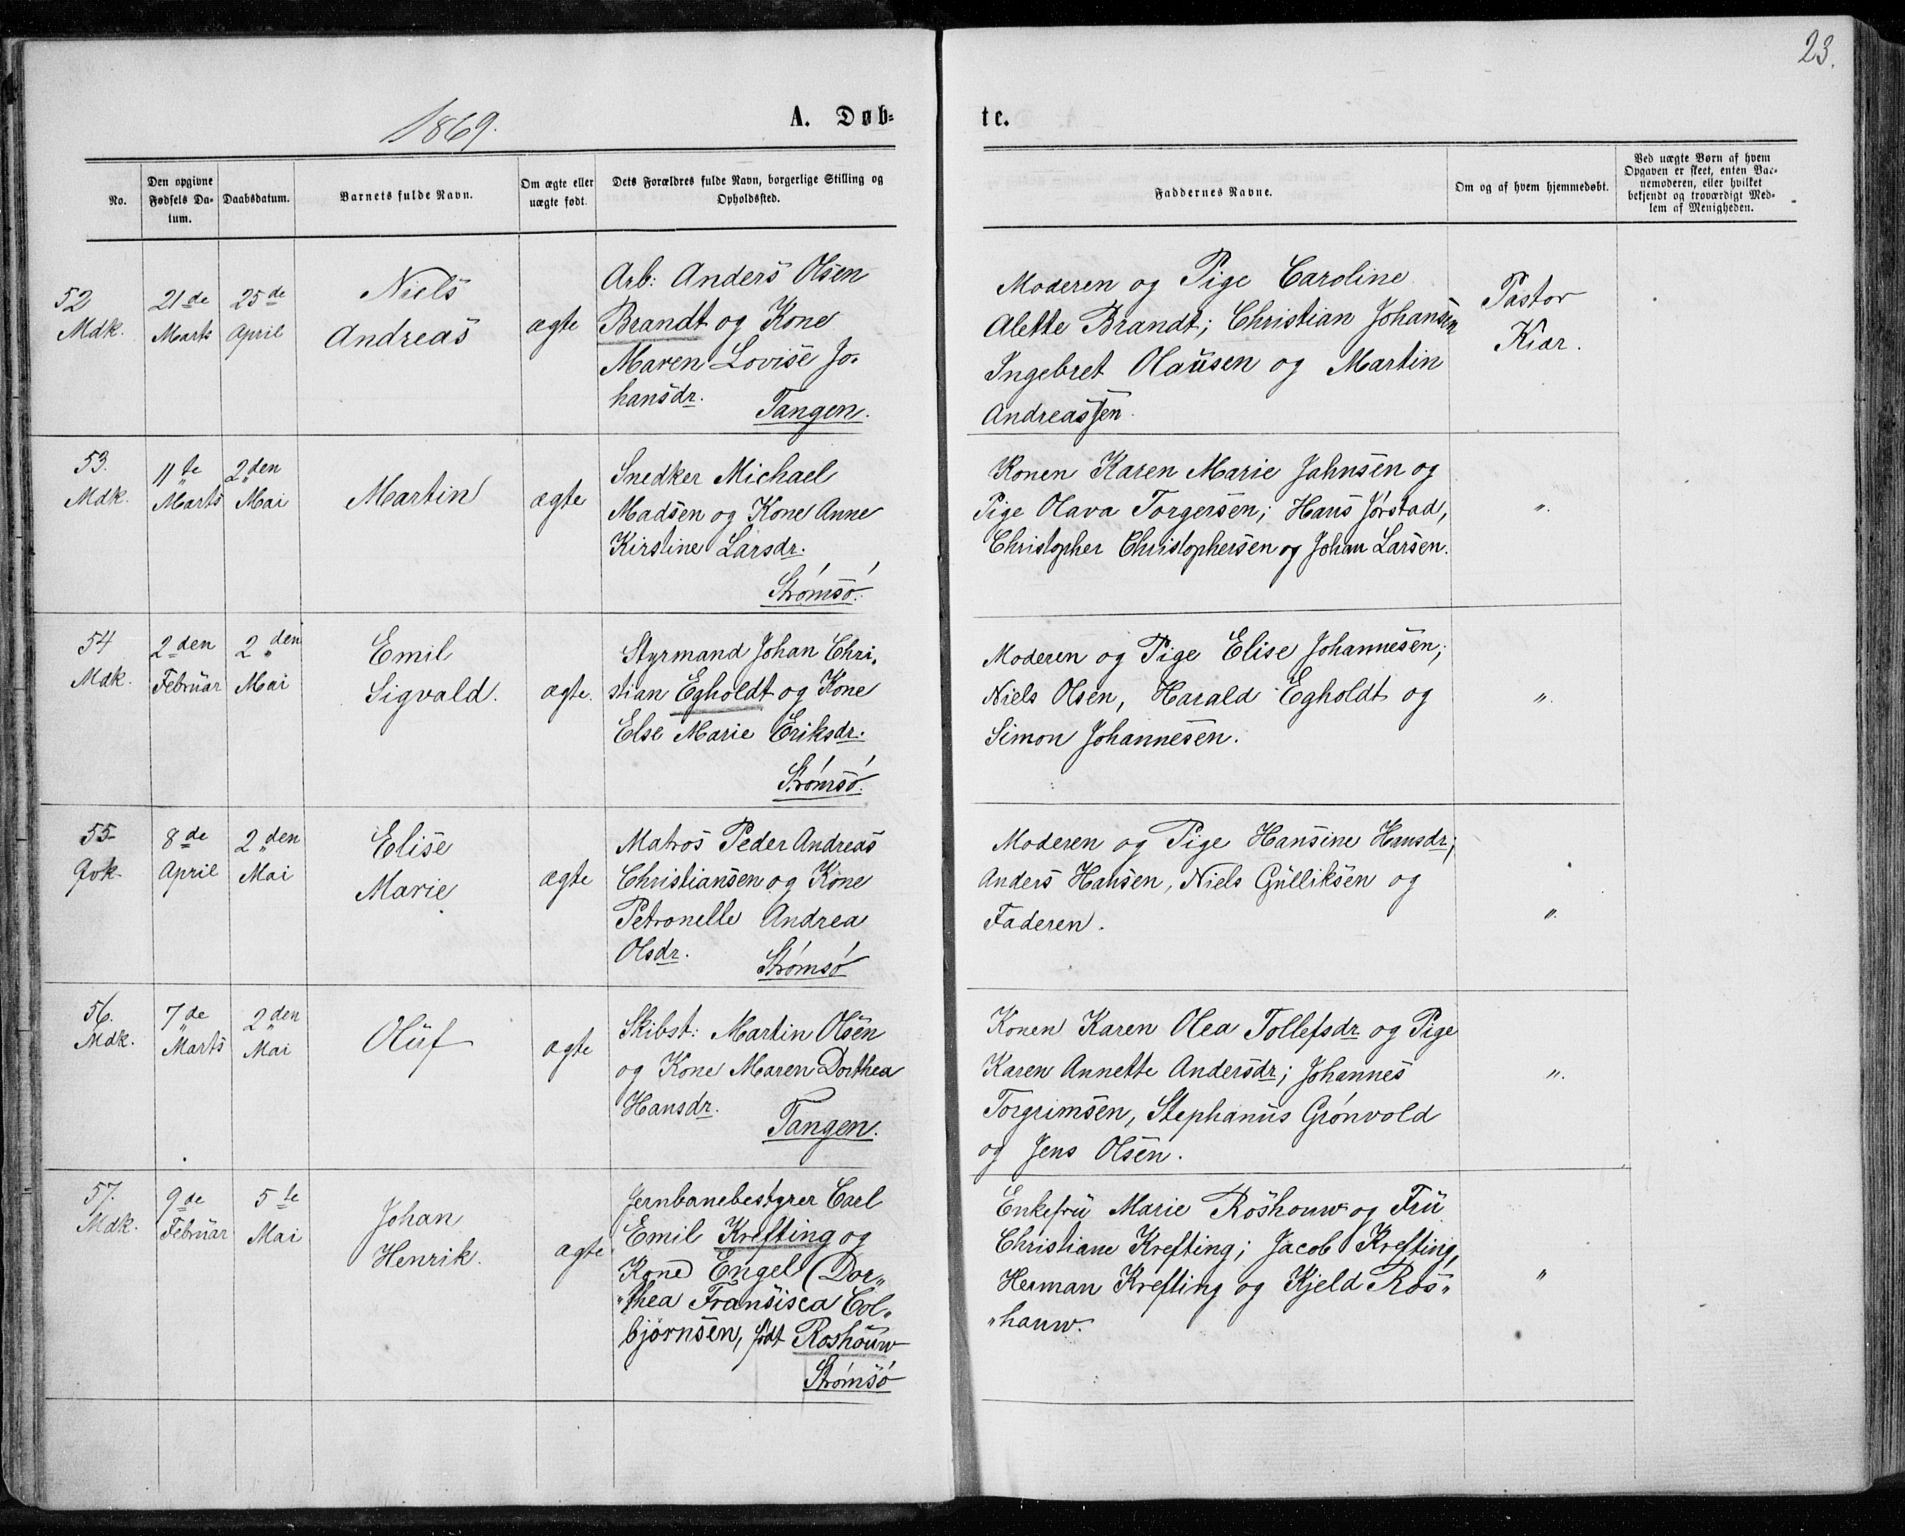 23.
1869.
A. Døb-
te.
No.
Den opgivne Fødsels Da-
tum.
Daabsdatum.
Barnets fulde Navn.
Om ægte eller
uægte født.
Dets Forældres fulde Navn, borgerlige Stilling og
Opholdssted.
Faddernes Navne.
Om og af hvem hjemmedøbt.
Ved uægte Børn af hvem
Opgaven er skeet, enten Bar-
nemoderen, eller hvilket
bekjendt og troværdigt Med-
lem af Menigheden.
52
Mdk.
21de
Marts
25de
April
Niels
Andreas
ægte
Arb: Anders Olsen
Brandt og Kone
Maren Lovise Jo-
hansdr.
Tangen.
Moderen og Pige Caroline
Alette Brandt; Christian Johansen
Ingebret Olausen og Martin
Andreassen.
Pastor
Kiær.
53.
Mdk.
11te
Marts
2den
Mai
Martin
ægte
Snedker Michael
Madsen og Kone Anne
Kirstine Larsdr.
Strømsø.
Konen Karen Marie Jahnsen og
Pige Olava Torgersen; Hans Jørstad,
Christopher Christophersen og Johan Larsen.
〃.
54
Mdk.
2den
Februar
2den
Mai
Emil
Sigvald.
ægte.
Styrmand Johan Chri-
stian Egholdt og Kone
Else Marie Eriksdr.
Strømsø.
Moderen og Pige Elise Johannesen;
Niels Olsen, Harald Egholdt og
Simon Johannesen.
〃.
55
Qvk.
8de
April
2den
Mai
Elise
Marie
ægte
Matros Peder Andreas
Christiansen og Kone
Petronelle Andrea
Olsdr.
Strømsø
Moderen og Pige Hansine Hansdr;
Anders Hansen, Niels Gulliksen og
Faderen.
〃.
56.
Mdk.
7de
Marts
2den
Mai
Oluf
ægte
Skibst: Martin Olsen
og Kone Maren Dorthea
Hansdr.
Tangen.
Konen Karen Olea Tollefsdr og Pige
Karen Annette Andersdr; Johannes
Torgrimsen, Stephanus Grønvold
og Jens Olsen.
〃.
57.
Mdk.
9de
Februar
5te
Mai
Johan
Henrik.
ægte
Jernbanebestyrer Carl
Emil Krefting og
Kone Engel (Dor〃
〃thea Fransisca Col〃
bjørnsen, født Roshouw
Strømsø
Enkefru Marie Roshouw og Fru
Christiane Krefting; Jacob Krefting,
Herman Krefting og Kjeld Ros〃
〃hauw.
〃